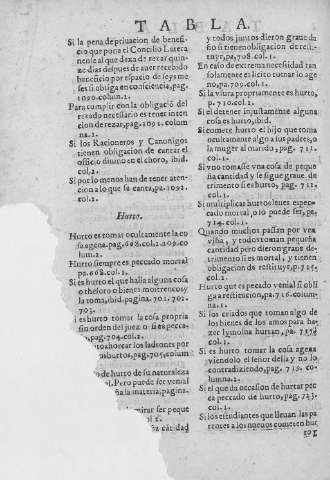 TABLA.
Si la pena de priuacion de benefi-
cio que pone el Concilio Latera
nense al que dexa de rezar quin-
ze dias despues de auer recebido
beneficio por espacio de seys me
ses si obliga en consciencia, pag.
1090. colum.1.
Para cumplir con la obligació del
rezado necessario es tener inten
cion de rezar, pag.1091. colum
na.1.
Si los Racioneros y Canonigos
tienen obligacion de cantar el
officio diuino en el choro, ibid.
col.2.
Si por lo menos han de tener aten-
cion a lo que se canta, pa.1092.
col.1.
Hurto.
Hurto es tomar ocultamente la co
sa agena. pag.698.col.2.209.co
lum.1.
Hurto siempre es peccado mortal
pa.698.col.1.
Si es hurto el que halla alguna cosa
o thesoro o bienes mortrencos, y
la toma, ibid. pagina.701.702.
703.
es hurto tomar la cosa propria
sin orden del juez o si es pecca-
pag.704.col.1.
ahorcar los ladrones por
hurtos, pag.705.colum
de hurto de su naturaleza
Pero puede ser venial
la materia, pagina.
mirar se peque
col.2.
cátidad
y todos juntos dieron graue da
ño si tienen obligacion de resti-
tuyr, pa,708.col.1.
En caso de extrema necessidad tan
solamente es licito tomar lo age
no, pa.709.col.1.
Si la vsura propriamente es hurto,
p.710.col.1.
Si el detener injustamẽte alguna
cosa es hurto, ibid.
Si comete hurto el hijo que toma
ocultamente algo a sus padres, o
la muger al marido, pag. 711.
col.1.
Si vno tomasse vna cosa de peque
ña cantidad y se sigue graue de-
trimento si es hurto, pag. 712.
col.1.
Si multiplicar hurtos leues es pec-
cado mortal, o lo puede ser, pa,
714.col.1.
Quando muchos passan por vna
viña, y todos toman pequeña
cantidad pero dieron graue de-
trimento si es mortal, y tienen
obligacion de restituyr, p.715.
col.1.
Hurto que es peccado venial si obli
ga a restitucion, pa.716.colum-
na.1.
Si los criados que toman algo de
los bienes de los amos para ha-
zer lymosna hurtan, pa. 717
col.1.
Si es hurto tomar la cosa agena
viendolo el señor della y no lo
contradiziendo, pag. 719. co-
lumna.1.
Si el que da occasion de hurtar pec
ca peccado de hurto, pag. 723.
col.1.
Si los estudiantes que lleuan las pa
rentes a los nueuos cometen hur